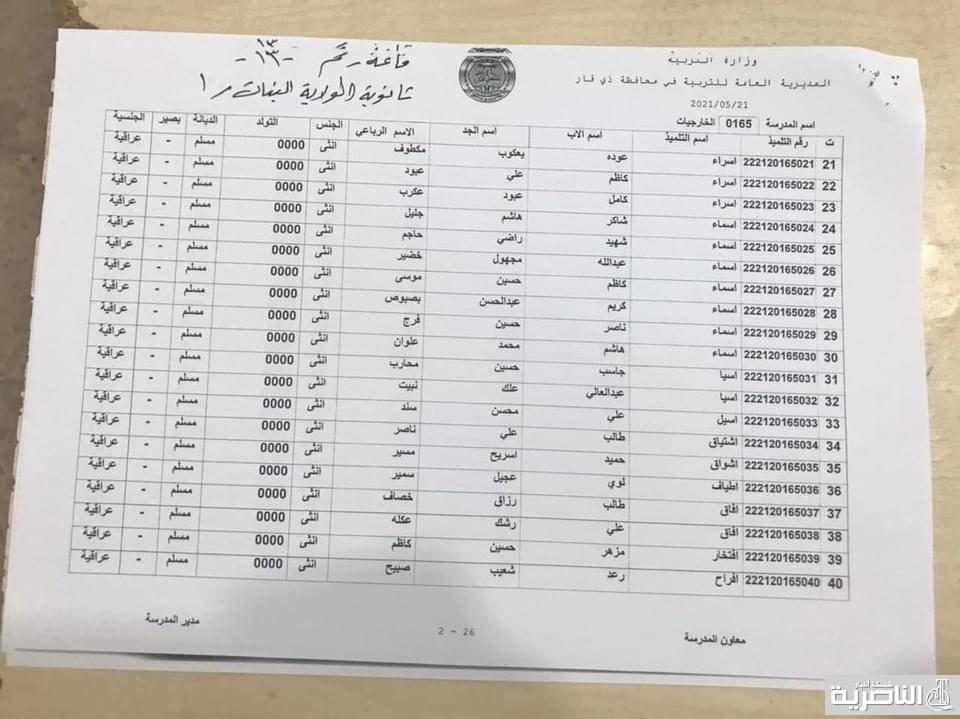 وزارة التربية
المديرية العامة للتربية في محافظة ذي قار
2021/05/21
قاعة رقم
-١٣-
ثانوية الولاية للبنات
اسم المدرسة 0165 الخارجيات
ت رقم التلميذ اسم التلميذ اسم الاب اسم الجد الاسم الرباعي الجنس التولد الديانة بصير الجنسية
21 222120165021 اسراء عوده يعكوب مكطوف انثى 0000 مسلم - عراقية
22 222120165022 اسراء كاظم علي عبود انثى 0000 مسلم - عراقية
23 222120165023 اسراء كامل عبود عكرب انثى 0000 مسلم - عراقية
24 222120165024 اسماء شاكر هاشم جليل انثى 0000 مسلم - عراقية
25 222120165025 اسماء شهيد راضي حاجم انثى 0000 مسلم - عراقية
26 222120165026 اسماء عبدالله مجهول خضير انثى 0000 مسلم - عراقية
27 222120165027 اسماء كاظم حسين موسى انثى 0000 مسلم - عراقية
28 222120165028 اسماء كريم عبدالحسن بصبوص انثى 0000 مسلم - عراقية
29 222120165029 اسماء ناصر حسين فرج انثى 0000 مسلم - عراقية
30 222120165030 اسماء هاشم محمد علوان انثى 0000 مسلم - عراقية
31 222120165031 اسيا جاسب حسين محارب انثى 0000 مسلم - عراقية
32 222120165032 اسيا عبدالعالي علك نبيت انثى 0000 مسلم - عراقية
33 222120165033 اسيل علي محسن سند انثى 0000 مسلم - عراقية
34 222120165034 اشتياق طالب علي ناصر انثى 0000 مسلم - عراقية
35 222120165035 اشواق حميد اسريح مسير انثى 0000 مسلم - عراقية
36 222120165036 اطياف لوي عجيل سمير انثى 0000 مسلم - عراقية
37 222120165037 افاق طالب رزاق خصاف انثى 0000 مسلم - عراقية
38 222120165038 افاق علي رشك عكله انثى 0000 مسلم - عراقية
39 222120165039 افتخار مزهر حسين كاظم انثى 0000 مسلم - عراقية
40 222120165040 افراح رعد شعيب صبيح انثى 0000 مسلم - عراقية
معاون المدرسة
2 - 26
مدير المدرسة
شبكة أخبار
الناصرية